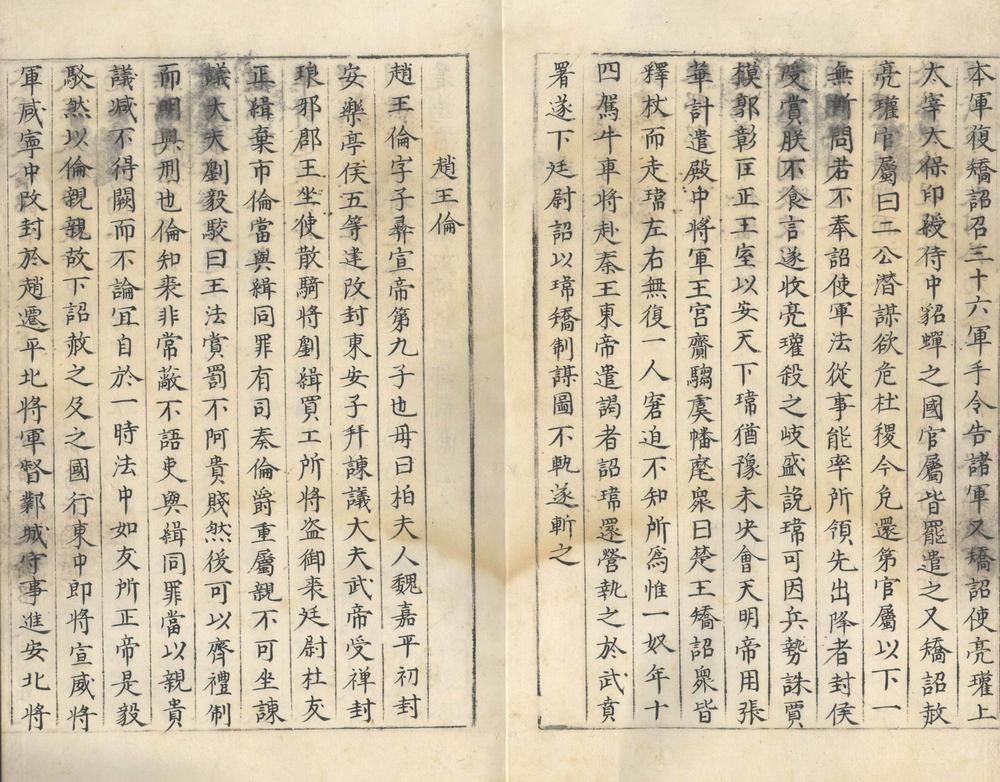 本軍復矯詔召三十六軍手令告諸軍又矯詔使亮瓘上
太宰太保印綬侍中貂蟬之國官屬皆罷遣之又矯詔赦
亮瓘官屬曰二公潛謀欲危社稷今免還第官屬以下一
無所問若不奉詔便軍法從事能率所領先出降者封侯
受賞朕不食言遂收亮瓘殺之岐盛說瑋可因兵勢誅賈
模郭彰匡正王室以安天下瑋猶豫未决會天明帝用張
華計遣殿中將軍王宮齎騶虞幡麾衆曰楚王矯詔衆皆
釋杖而走瑋左右無復一人窘迫不知所爲惟一奴年十
四駕牛車將赴秦王東帝遣謁者詔瑋還營執之於武賁
署遂下廷尉詔以瑋矯制謀圖不軌遂斬之
趙王倫
趙王倫字子彛宣帝第九子也母曰柏夫人魏嘉平初封
安樂亭侯五等建改封東安子拜諫議大夫武帝受禅封
琅邪郡王坐使散騎將劉緝買工所將盜御裘廷尉杜友
正緝棄市倫當與緝同罪有司奏倫爵重屬親不可坐諫
議大夫劉毅駮曰王法賞罰不阿貴賤然後可以齊禮制
而明典刑也倫知裘非常蔽不語吏與緝同罪當以親貴
議减不得闕而不論宜自於一時法中如友所正帝是毅
駮然以倫親親故下詔赦之及之國行東中郎將宣威將
軍咸寧中改封於趙遷平北將軍督鄴城守事進安北將